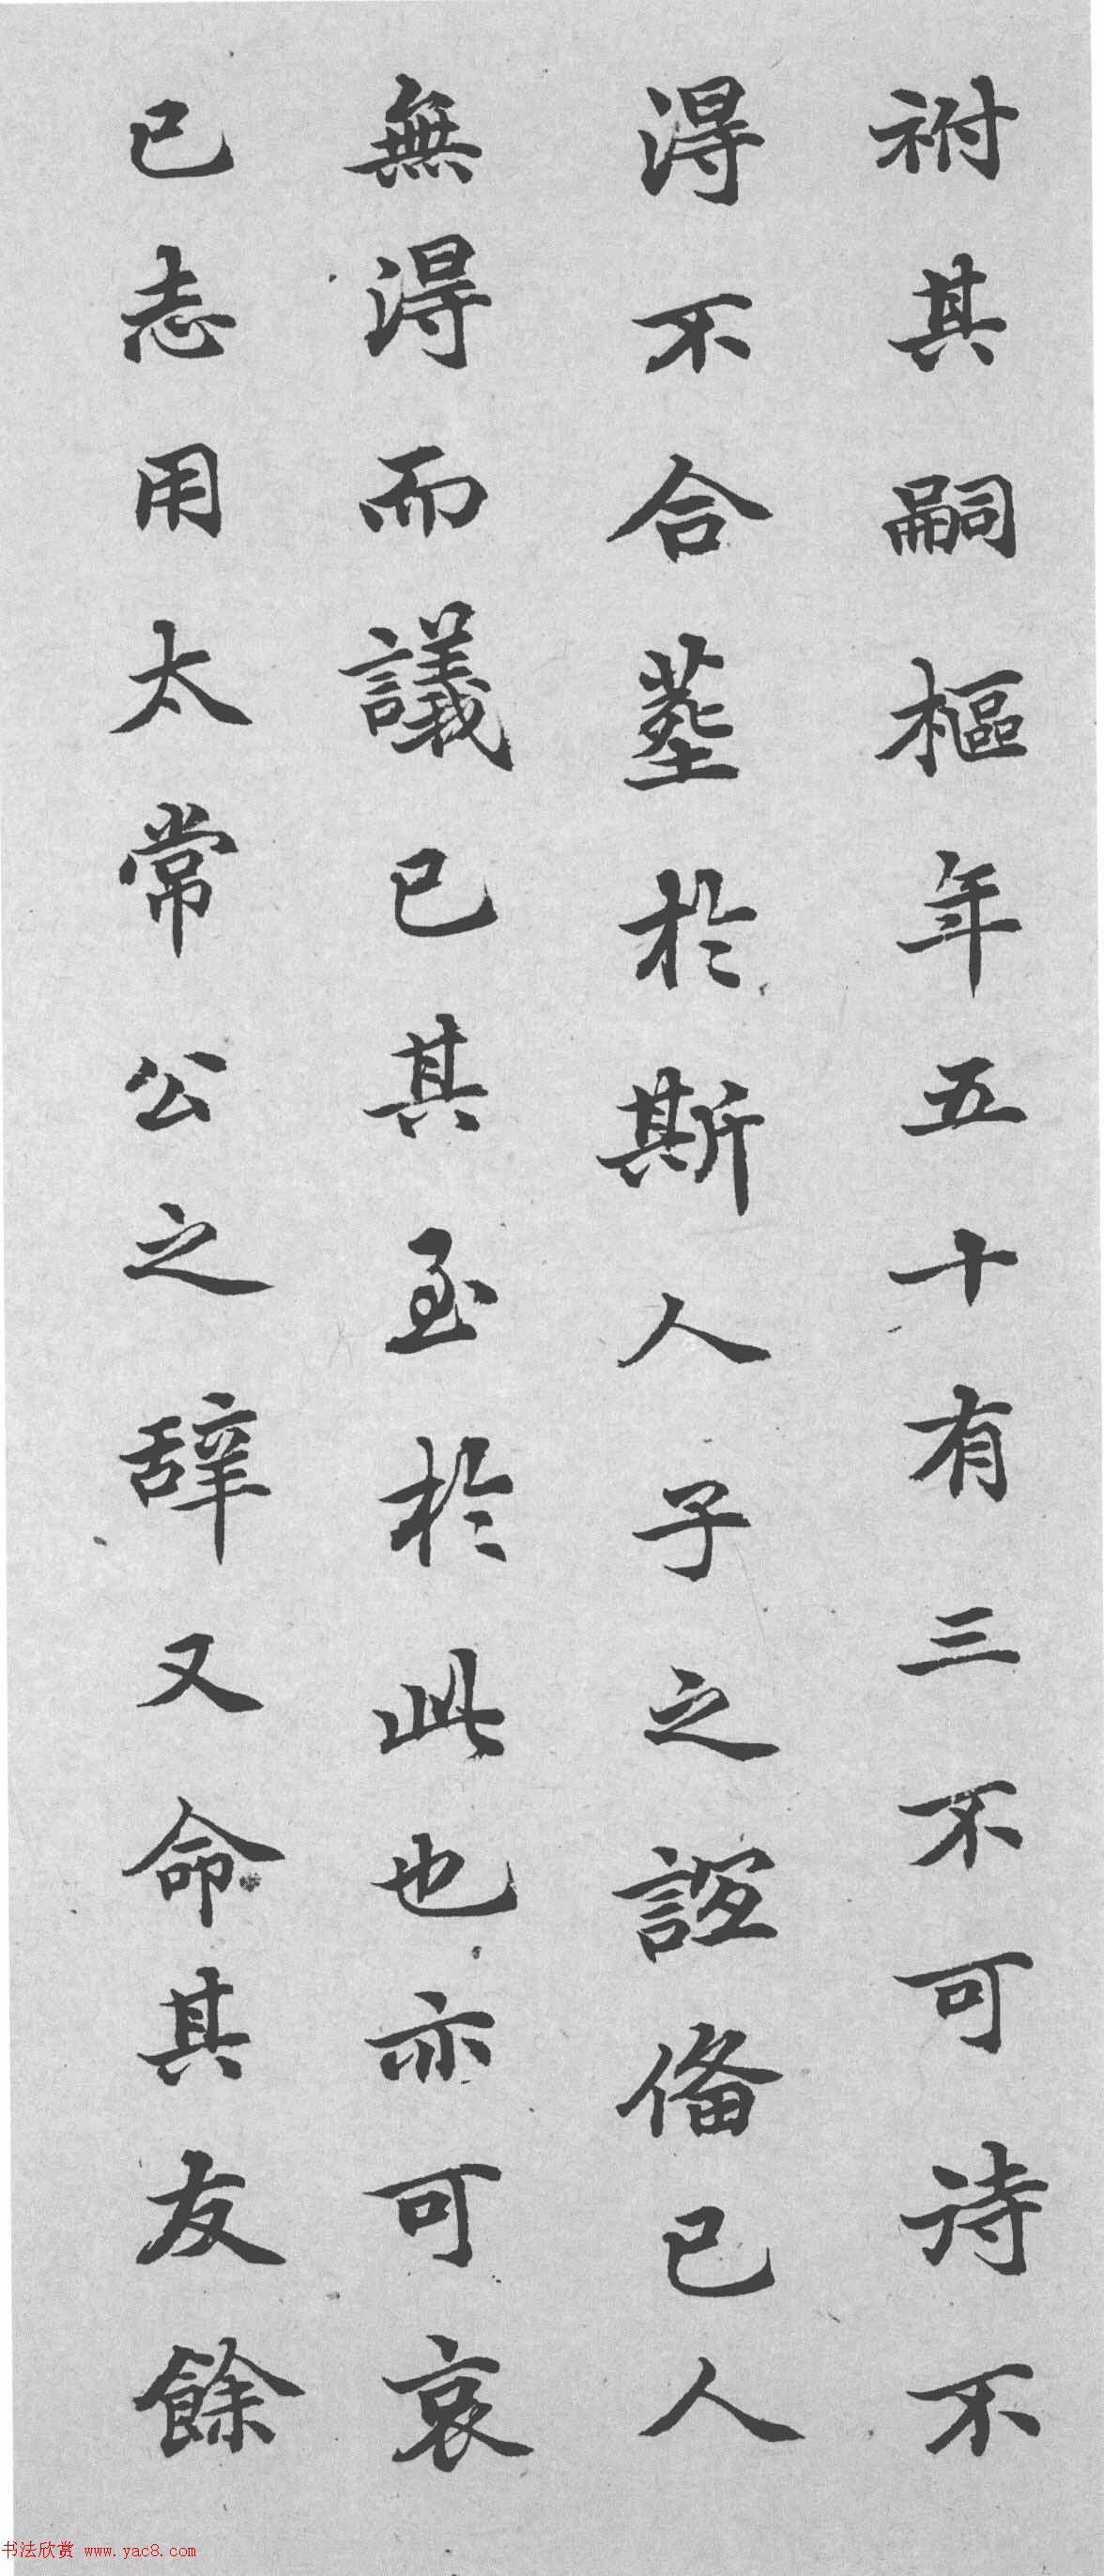 祔其嗣樞年五十有三不可詩不
得不合塟於斯人子之誼俻已人
無得而議已其至於此也亦可哀
已志用太常公之辞又命其友餘
书法欣赏 www.yac8.com